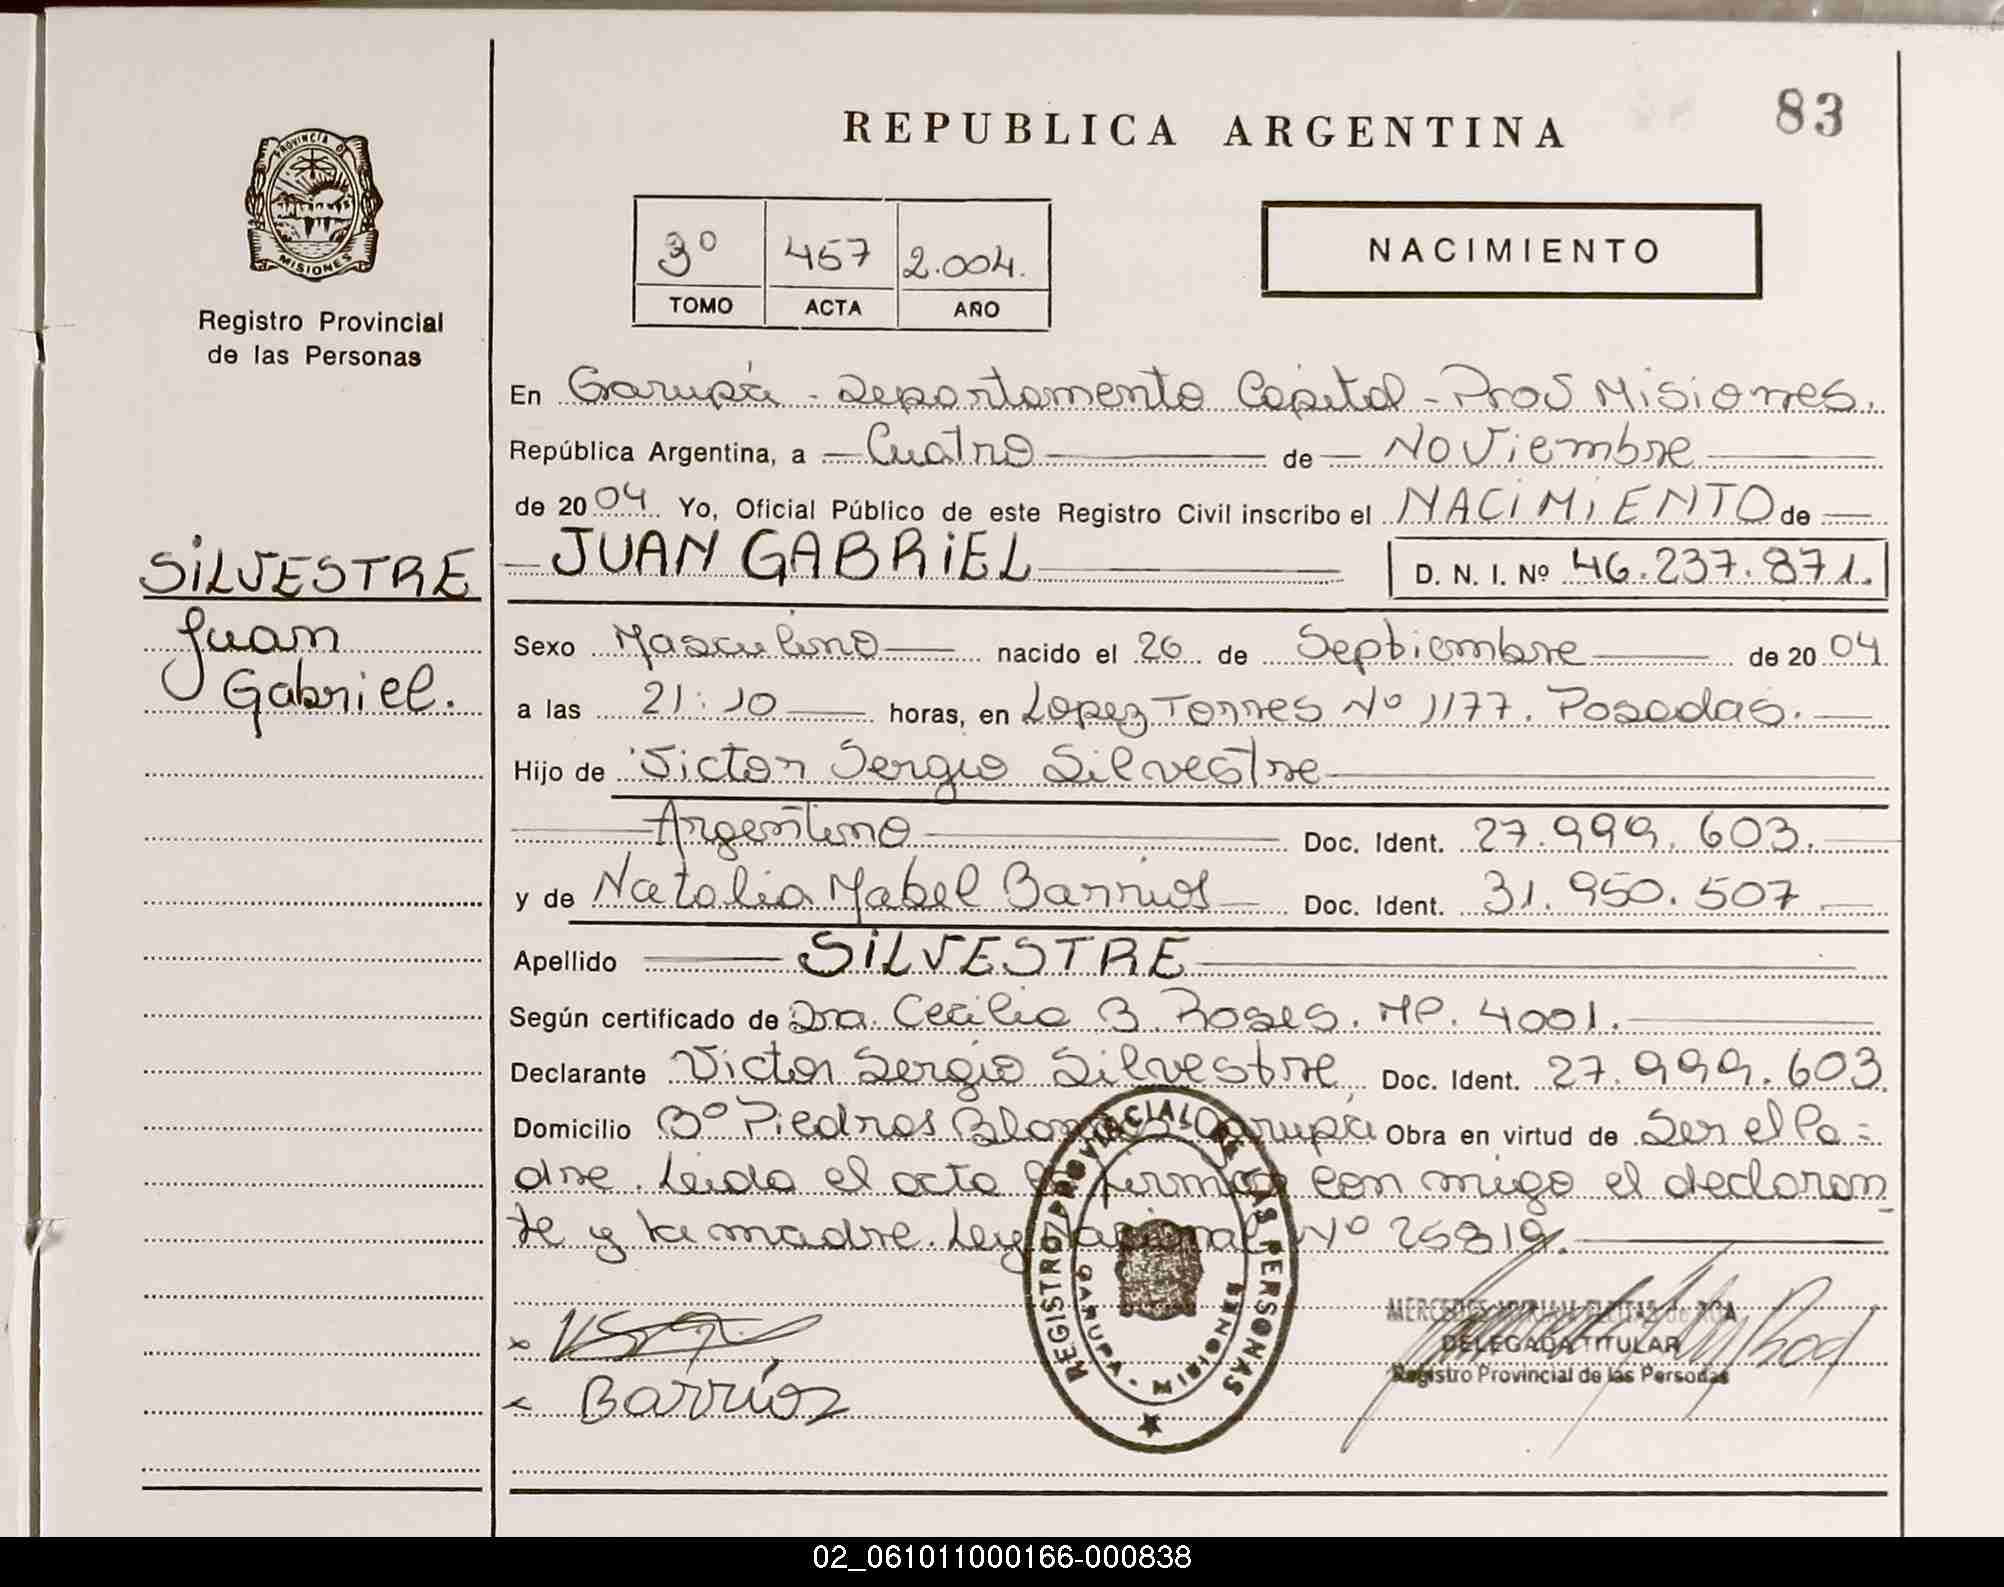 REPUBLICA ARGENTINA
83
PROVINCIA D
MISIONES
Registro Provincial
de las Personas
3º 457 2.004.
TOMO ACTA AÑO
NACIMIENTO
En Garupá - Departamento Capital - Prov Misiones.
República Argentina, a Cuatro de Noviembre
de 2004. Yo, Oficial Público de este Registro Civil inscribo el NACIMIENTO de
JUAN GABRIEL D. N. I. Nº 46.237.871.
SILVESTRE
Juan
Gabriel.
Sexo Masculino nacido el 26 de Septiembre de 2004
a las 21:10 horas, en Lopez Torres Nº 1177. Posadas.
Hijo de Victor Sergio Silvestre
Argentino Doc. Ident. 27.999.603.
y de Natalia Mabel Barrios Doc. Ident. 31.950.507
Apellido SILVESTRE
Según certificado de Dra. Cecilia B. Roses. MP. 4001.
Declarante Victor Sergio Silvestre Doc. Ident. 27.999.603
Domicilio Bº Piedras Blancas Garupá Obra en virtud de Ser el Pa-
dre. Leida el acta la firman con migo el declaran
te y la madre. Ley Nacional Nº 25819.
REGISTRO PROVINCIAL DE LAS PERSONAS
GARUPA - MISIONES
MERCEDES MIRIAM FLEITAS de ROA
DELEGADA TITULAR
Registro Provincial de las Personas
x
x Barrios
02_061011000166-000838